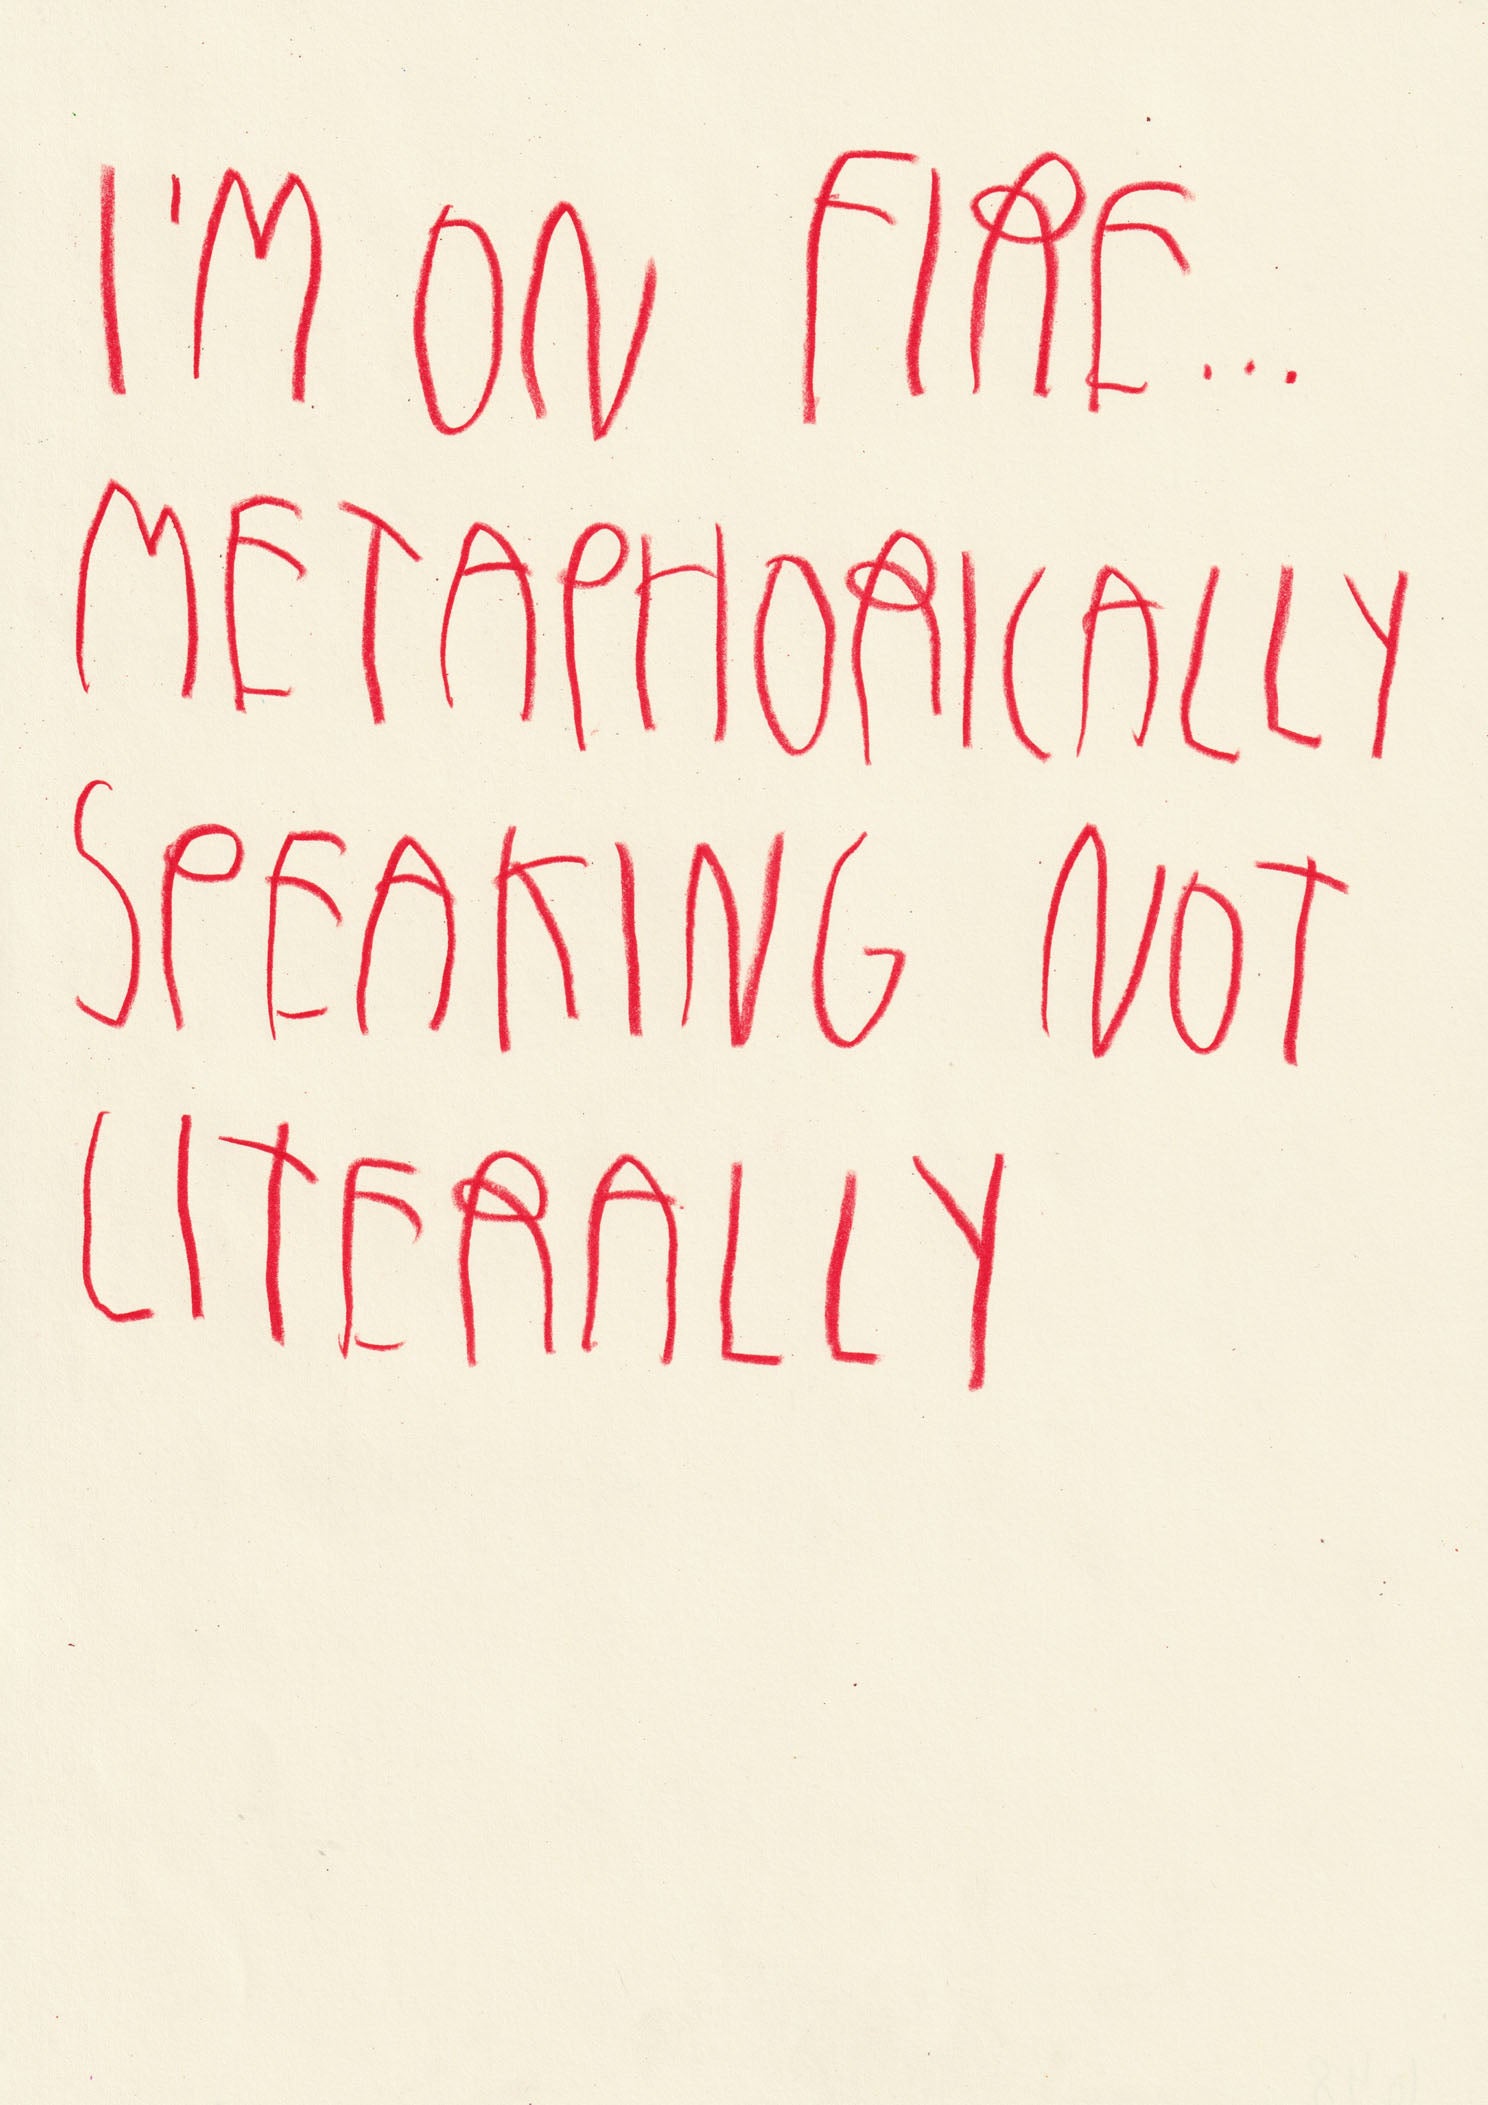 I'M ON FIRE...
METAPHORICALLY
SPEAKING NOT
LITERALLY